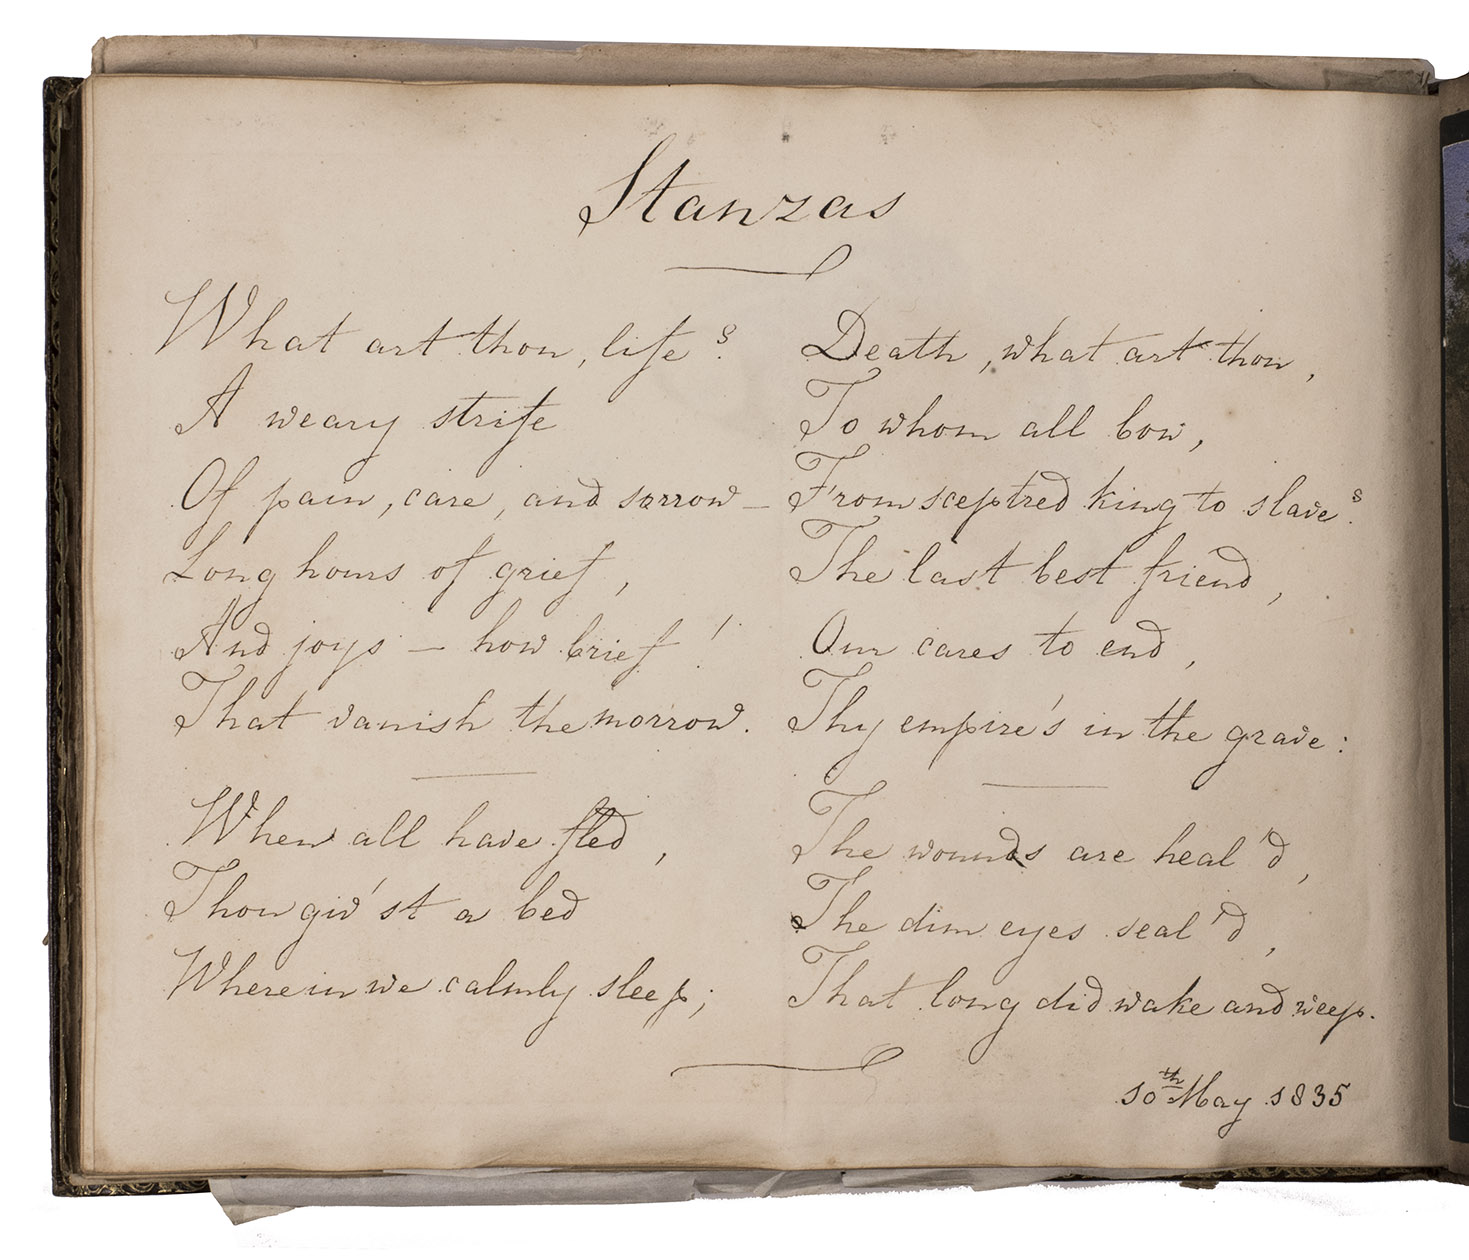 Stanzas
What art thou, life?
A weary strife
Of pain, care, and sorrow —
Long hours of grief,
And joys — how brief!
That vanish the morrow.
Death, what art thou,
To whom all bow,
From sceptred king to slave?
The last best friend,
Our cares to end,
Thy empire's in the grave:
When all have fled,
Thou giv'st a bed
Wherein we calmly sleep;
The wounds are heal'd,
The dim eyes seal'd,
That long did wake and weep.
10th May 1835